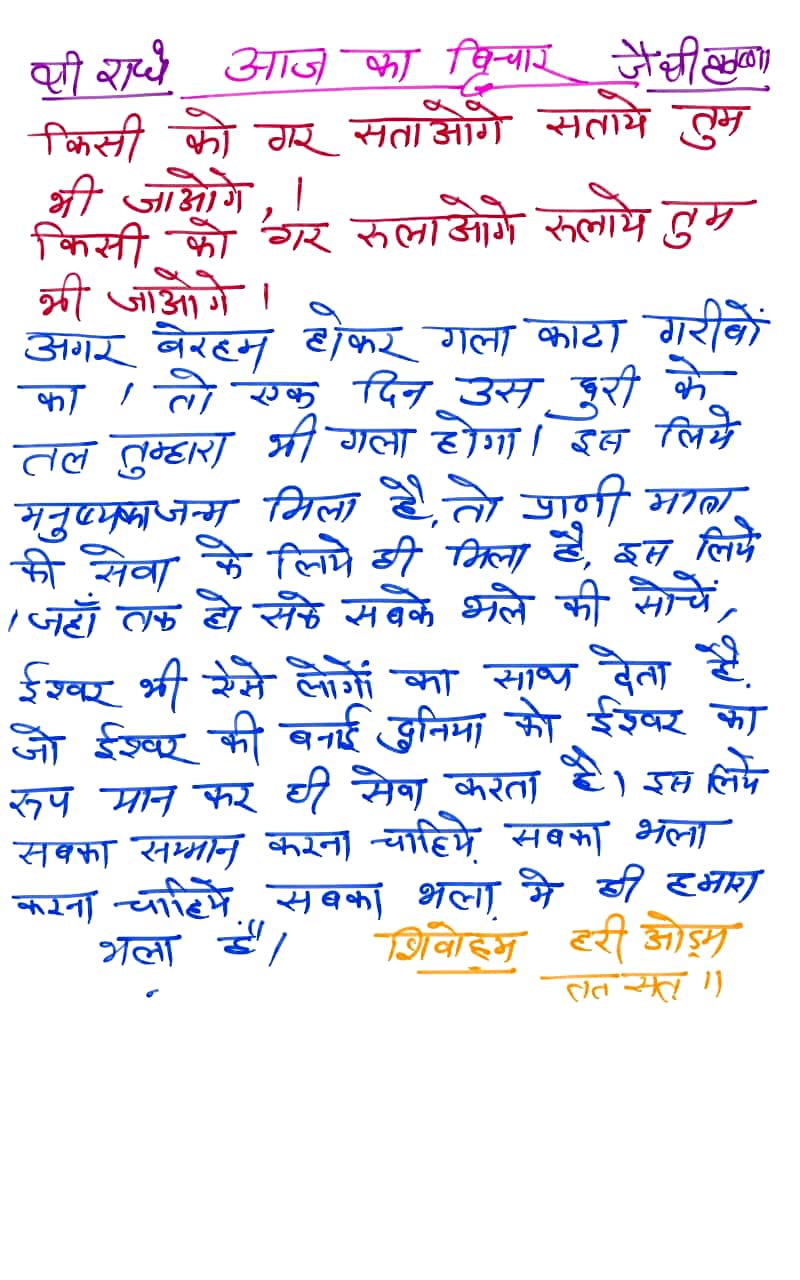 श्री राधे आज का विचार जै श्री कृष्णा
किसी को गर सताओगे सताये तुम
भी जाओगे,।
किसी को गर रुलाओगे रुलाये तुम
भी जाओगे।
अगर बेरहम होकर गला काटा गरीबों
का । तो एक दिन उस छुरी के
तल तुम्हारा भी गला होगा। इस लिये
मनुष्यका जन्म मिला है, तो प्राणी मात्र
की सेवा के लिये ही मिला है, इस लिये
। जहाँ तक हो सके सबके भले की सोचें,
ईश्वर भी ऐसे लोगों का साथ देता है,
जो ईश्वर की बनाई दुनिया को ईश्वर का
रूप मान कर ही सेवा करता है। इस लिये
सबका सम्मान करना चाहिये, सबका भला
करना चाहिये, सबका भला मे ही हमारा
भला है"। शिवोहम हरी ओइम
तत सत् ॥